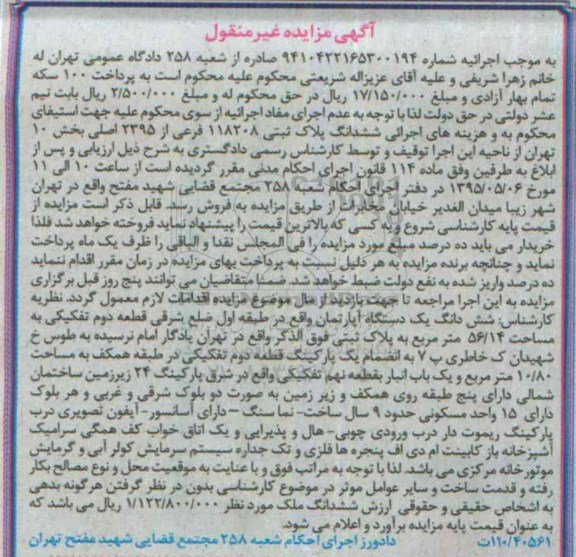 آگهی مزایده غیر منقول
به موجب اجرائیه شماره ۹۴۱۰۴۲۲۱۶۵۳۰۰۱۹۴ صادره از شعبه ۲۵۸ دادگاه عمومی تهران له
خانم زهرا شریفی و علیه آقای عزیزاله شریعتی محکوم علیه محکوم است به پرداخت ۱۰۰ سکه
تمام بهار آزادی و مبلغ ۱۷/۱۵۰/۰۰۰ ریال در حق محکوم له و مبلغ ۲/۵۰۰/۰۰۰ ریال بابت نیم
عشر دولتی در حق دولت لذا با توجه به عدم اجرای مفاد اجرائیه از سوی محکوم علیه جهت استیفای
محکوم به و هزینه های اجرائی ششدانگ پلاک ثبتی ۱۱۸۲۰۸ فرعی از ۲۳۹۵ اصلی بخش ۱۰
تهران از ناحیه این اجرا توقیف و توسط کارشناس رسمی دادگستری به شرح ذیل ارزیابی و پس از
ابلاغ به طرفین وفق ماده ۱۱۴ قانون اجرای احکام مدنی مقرر گردیده است از ساعت ۱۰ الی ۱۱
مورخ ۱۳۹۵/۰۵/۰۶ در دفتر اجرای احکام شعبه ۲۵۸ مجتمع قضایی شهید مفتح واقع در تهران
شهر زیبا میدان الغدیر خیابان مخابرات از طریق مزایده به فروش رسد. قابل ذکر است مزایده از
قیمت پایه کارشناسی شروع و به کسی که بالاترین قیمت را پیشنهاد نماید فروخته خواهد شد فلذا
خریدار می باید ده درصد مبلغ مورد مزایده را فی المجلس نقدا و الباقی را ظرف یک ماه پرداخت
نماید و چنانچه برنده مزایده به هر دلیل نسبت به پرداخت بهای مزایده در زمان مقرر اقدام ننماید
ده درصد واریز شده به نفع دولت ضبط خواهد شد. ضمنا متقاضیان می توانند پنج روز قبل برگزاری
مزایده به این اجرا مراجعه تا جهت بازدید از مال موضوع مزایده اقدامات لازم معمول گردد. نظریه
کارشناس: شش دانگ یک دستگاه آپارتمان واقع در طبقه اول ضلع شرقی قطعه دوم تفکیکی به
مساحت ۵۶/۱۴ متر مربع به پلاک ثبتی فوق الذکر واقع در تهران یادگار امام نرسیده به طوس خ
شهیدان ک خاطری پ ۷ به انضمام یک پارکینگ قطعه دوم تفکیکی در طبقه همکف به مساحت
۱۰/۸۰ متر مربع و یک باب انبار بقطعه نهم تفکیکی واقع در شرق پارکینگ ۲۴ زیرزمین ساختمان
شمالی دارای پنج طبقه روی همکف و زیر زمین به صورت دو بلوک شرقی و غربی و هر بلوک
دارای ۱۵ واحد مسکونی حدود ۹ سال ساخت- نما سنگ – دارای آسانسور- آیفون تصویری درب
پارکینگ ریموت دار درب ورودی چوبی- هال و پذیرایی و یک اتاق خواب کف همگی سرامیک
آشپزخانه باز کابینت ام دی اف پنجره ها فلزی و تک جداره سیستم سرمایش کولر آبی و گرمایش
موتورخانه مرکزی می باشد. لذا با توجه به مراتب فوق و با عنایت به موقعیت محل و نوع مصالح بکار
رفته و قدمت ساخت و سایر عوامل موثر در موضوع کارشناسی بدون در نظر گرفتن هرگونه بدهی
به اشخاص حقیقی و حقوقی ارزش ششدانگ ملک مورد نظر ۱/۱۲۲/۸۰۰/۰۰۰ ریال می باشد که
به عنوان قیمت پایه مزایده برآورد و اعلام می شود.
۱۱۰/۴۰۵۶۱ت دادورز اجرای احکام شعبه ۲۵۸ مجتمع قضایی شهید مفتح تهران